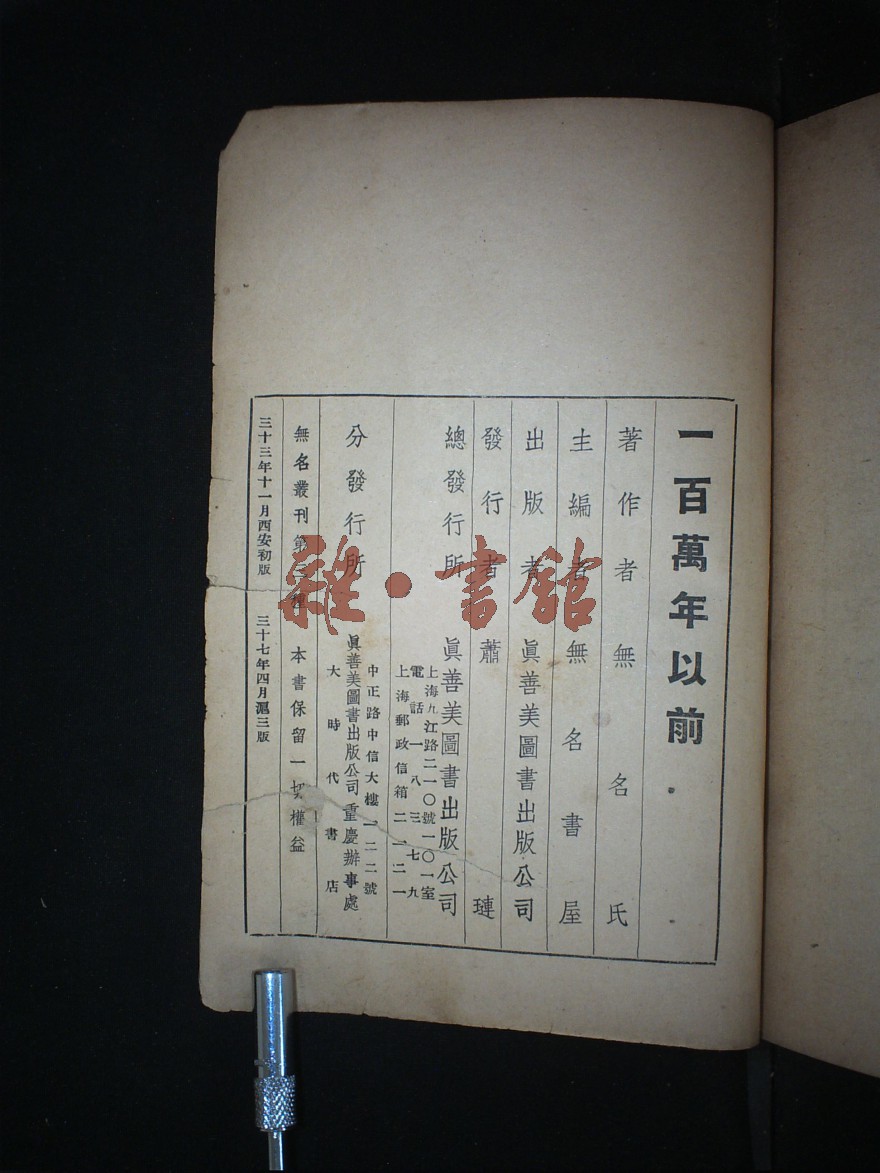 一百萬年以前
著作者 無名氏
主編者 無名書屋
出版者 眞善美圖書出版公司
發行者 蕭璉
總發行所 眞善美圖書出版公司
上海九江路二一〇號一〇一室
電話一八三七九
上海郵政信箱二一二一
分發行所
中正路中信大樓一二二號
眞善美圖書出版公司重慶辦事處
大時代書店
無名叢刊第 種 本書保留一切權益
三十三年十一月西安初版 三十七年四月滬三版
雜·書館